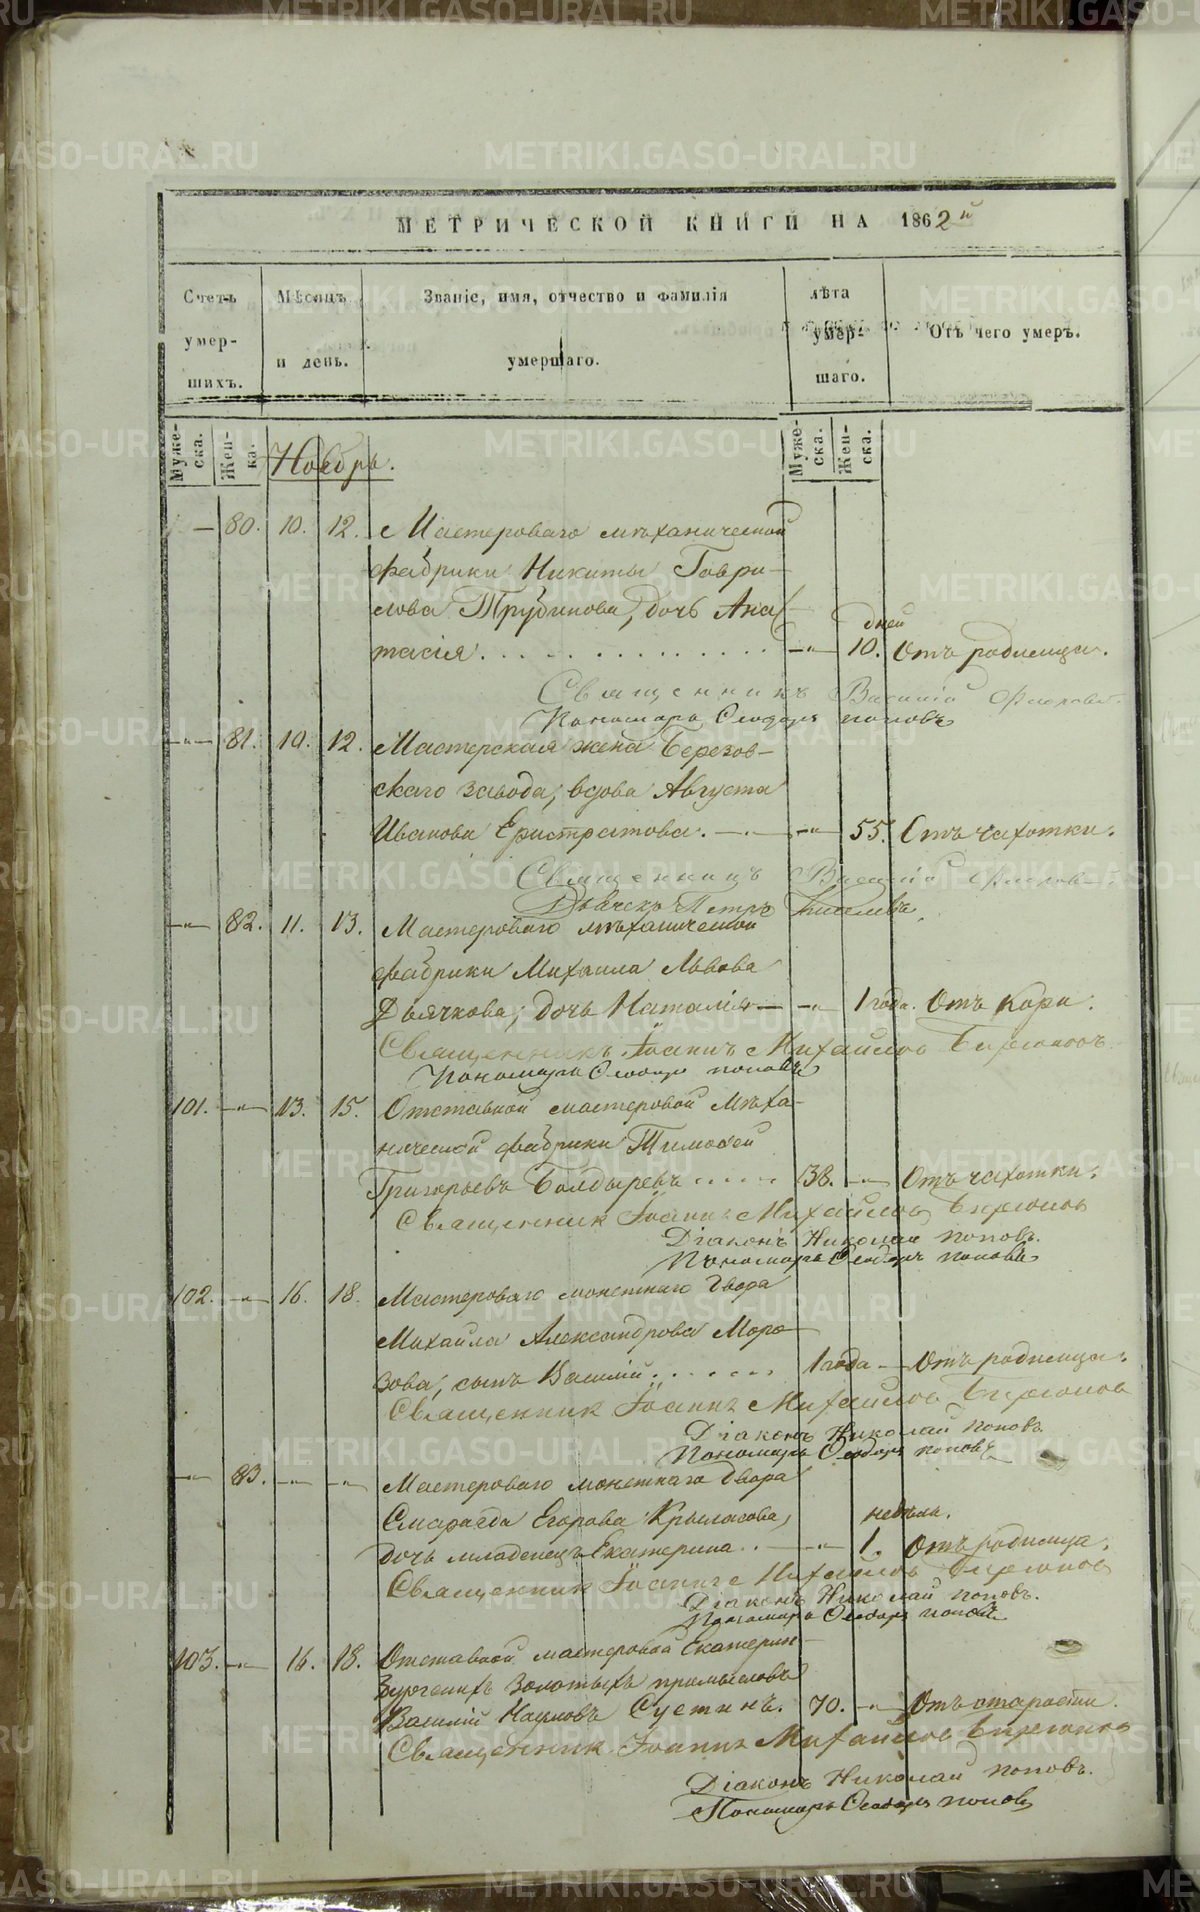 МЕТРИЧЕСКОЙ КНИГИ НА 1862й
Счетъ умер- шихъ.
Мѣсяцъ и день.
Званіе, имя, отчество и фамилія умершаго.
лѣта умер- шаго.
Отъ чего умеръ.
Муже- ска.
Жен- ска.
Муже- ска.
Жен- ска.
Ноябрь.
— 80. 10. 12. Мастероваго механической
фабрики Никиты Гаври-
лова Трубинова, дочь Анас-
дней
тасія. — 10. Отъ родимца.
Священникъ Василій Флоровъ
Пономарь Ѳеодоръ Поповъ
— 81. 10. 12. Мастерская жена Березов-
скаго завода, вдова Августа
Иванова Еристратова. — 55. Отъ чахотки.
Священникъ Василій Флоровъ
Дьячекъ Петръ Киселевъ
— 82. 11. 13. Мастероваго механической
фабрики Михаила Львова
Дьячкова, дочь Наталія — 1 года. Отъ кори.
Священникъ Іоаннъ Михайловъ
Пономарь Ѳеодоръ Поповъ
101. — 13. 15. Отставной мастеровой Меха-
нической фабрики Тимоѳей
Григорьевъ Болдыревъ 38. — Отъ чахотки.
Священник Іоаннъ Михайловъ
Діаконъ Николай Поповъ.
Пономарь Ѳеодоръ Поповъ
102. — 16. 18. Мастероваго монетнаго двора
Михайла Александрова Моро-
зова, сынъ Василій. 1 года — Отъ родимца.
Священник Іоаннъ Михайловъ
Діаконъ Николай Поповъ
Пономарь Ѳеодоръ Поповъ
— 83. — — Мастероваго монетнаго двора
Смарагда Егорова Крыласова,
недѣли.
дочь младенецъ Екатерина. — 1. Отъ родимца.
Священник Іоаннъ Михайловъ
Діаконъ Николай Поповъ.
Пономарь Ѳеодоръ Поповъ
103. — 16. 18. Отставной мастеровой Екатерин-
бургскихъ золотыхъ промысловъ
Василій Наумовъ Сустинъ. 70. — Отъ старости.
Священник Іоаннъ Михайловъ
Діаконъ Николай Поповъ.
Пономарь Ѳеодоръ Поповъ
METRIKI.GASO-URAL.RU